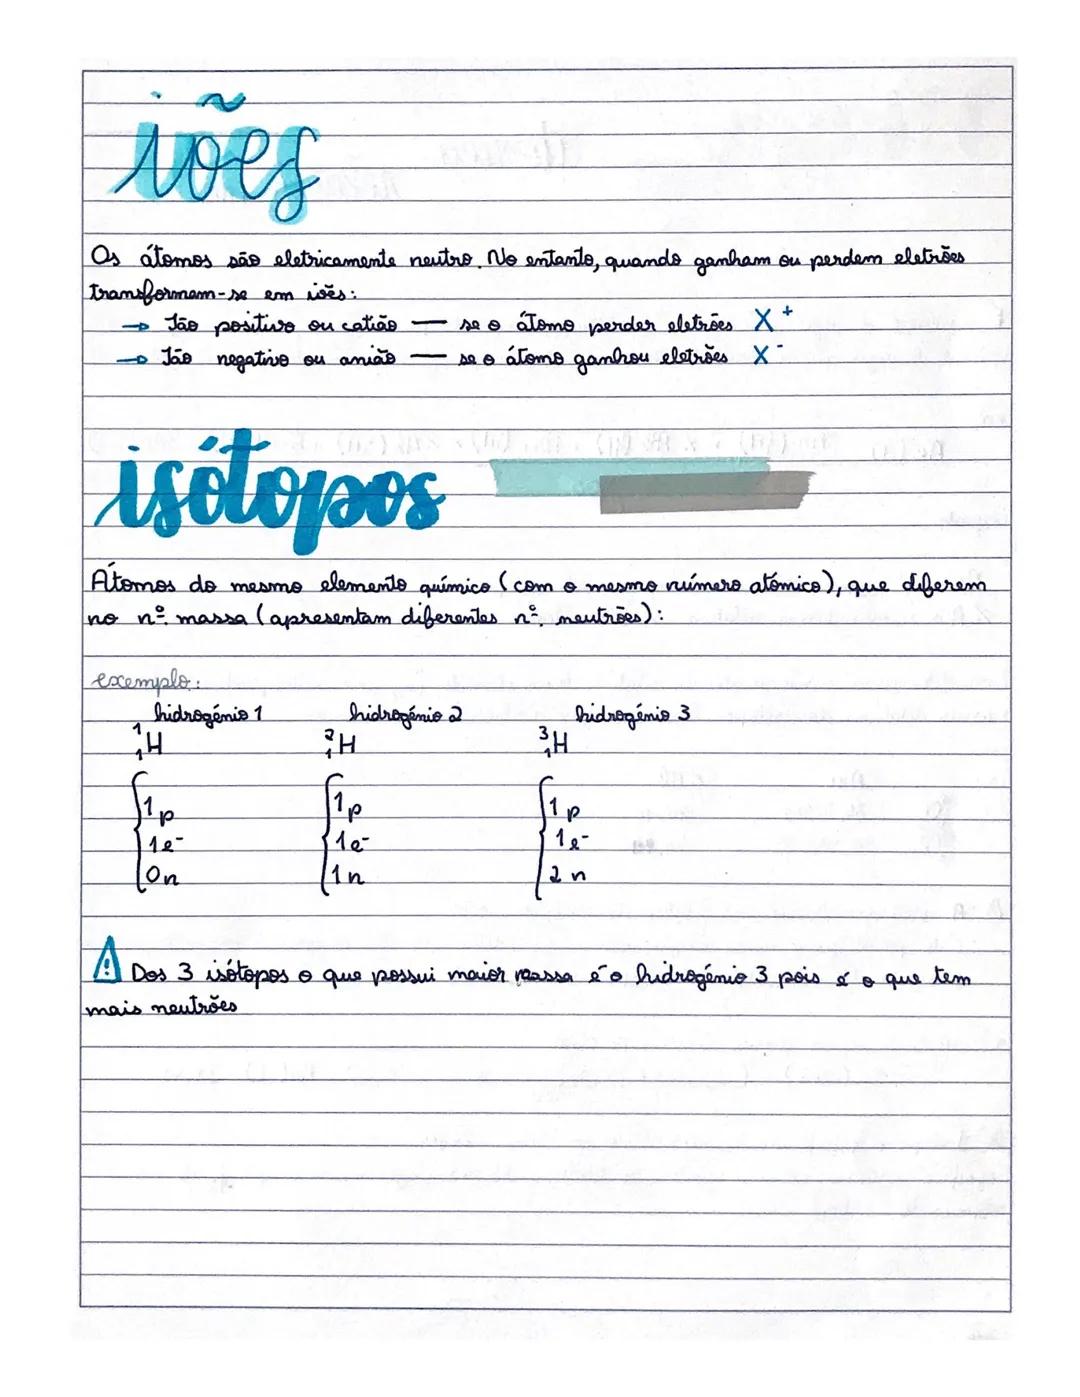 iões
Os átomos são eletricamente neutro. No entanto, quando ganham ou perdem eletrões
transformam-se em iões:
→ Ião positivo ou catião — se o átomo perder eletrões X⁺
→ Ião negativo ou anião — se o átomo ganhou eletrões X⁻
isótopos
Átomos do mesmo elemento químico (com o mesmo número atómico), que diferem
no nº. massa (apresentam diferentes nº. neutrões):
exemplo:
hidrogénio 1 hidrogénio 2 hidrogénio 3
¹₁H ²₁H ³₁H
1p 1p 1p
1e⁻ 1e⁻ 1e⁻
0n 1n 2n
! Dos 3 isótopos o que possui maior massa é o hidrogénio 3 pois é o que tem
mais neutrões